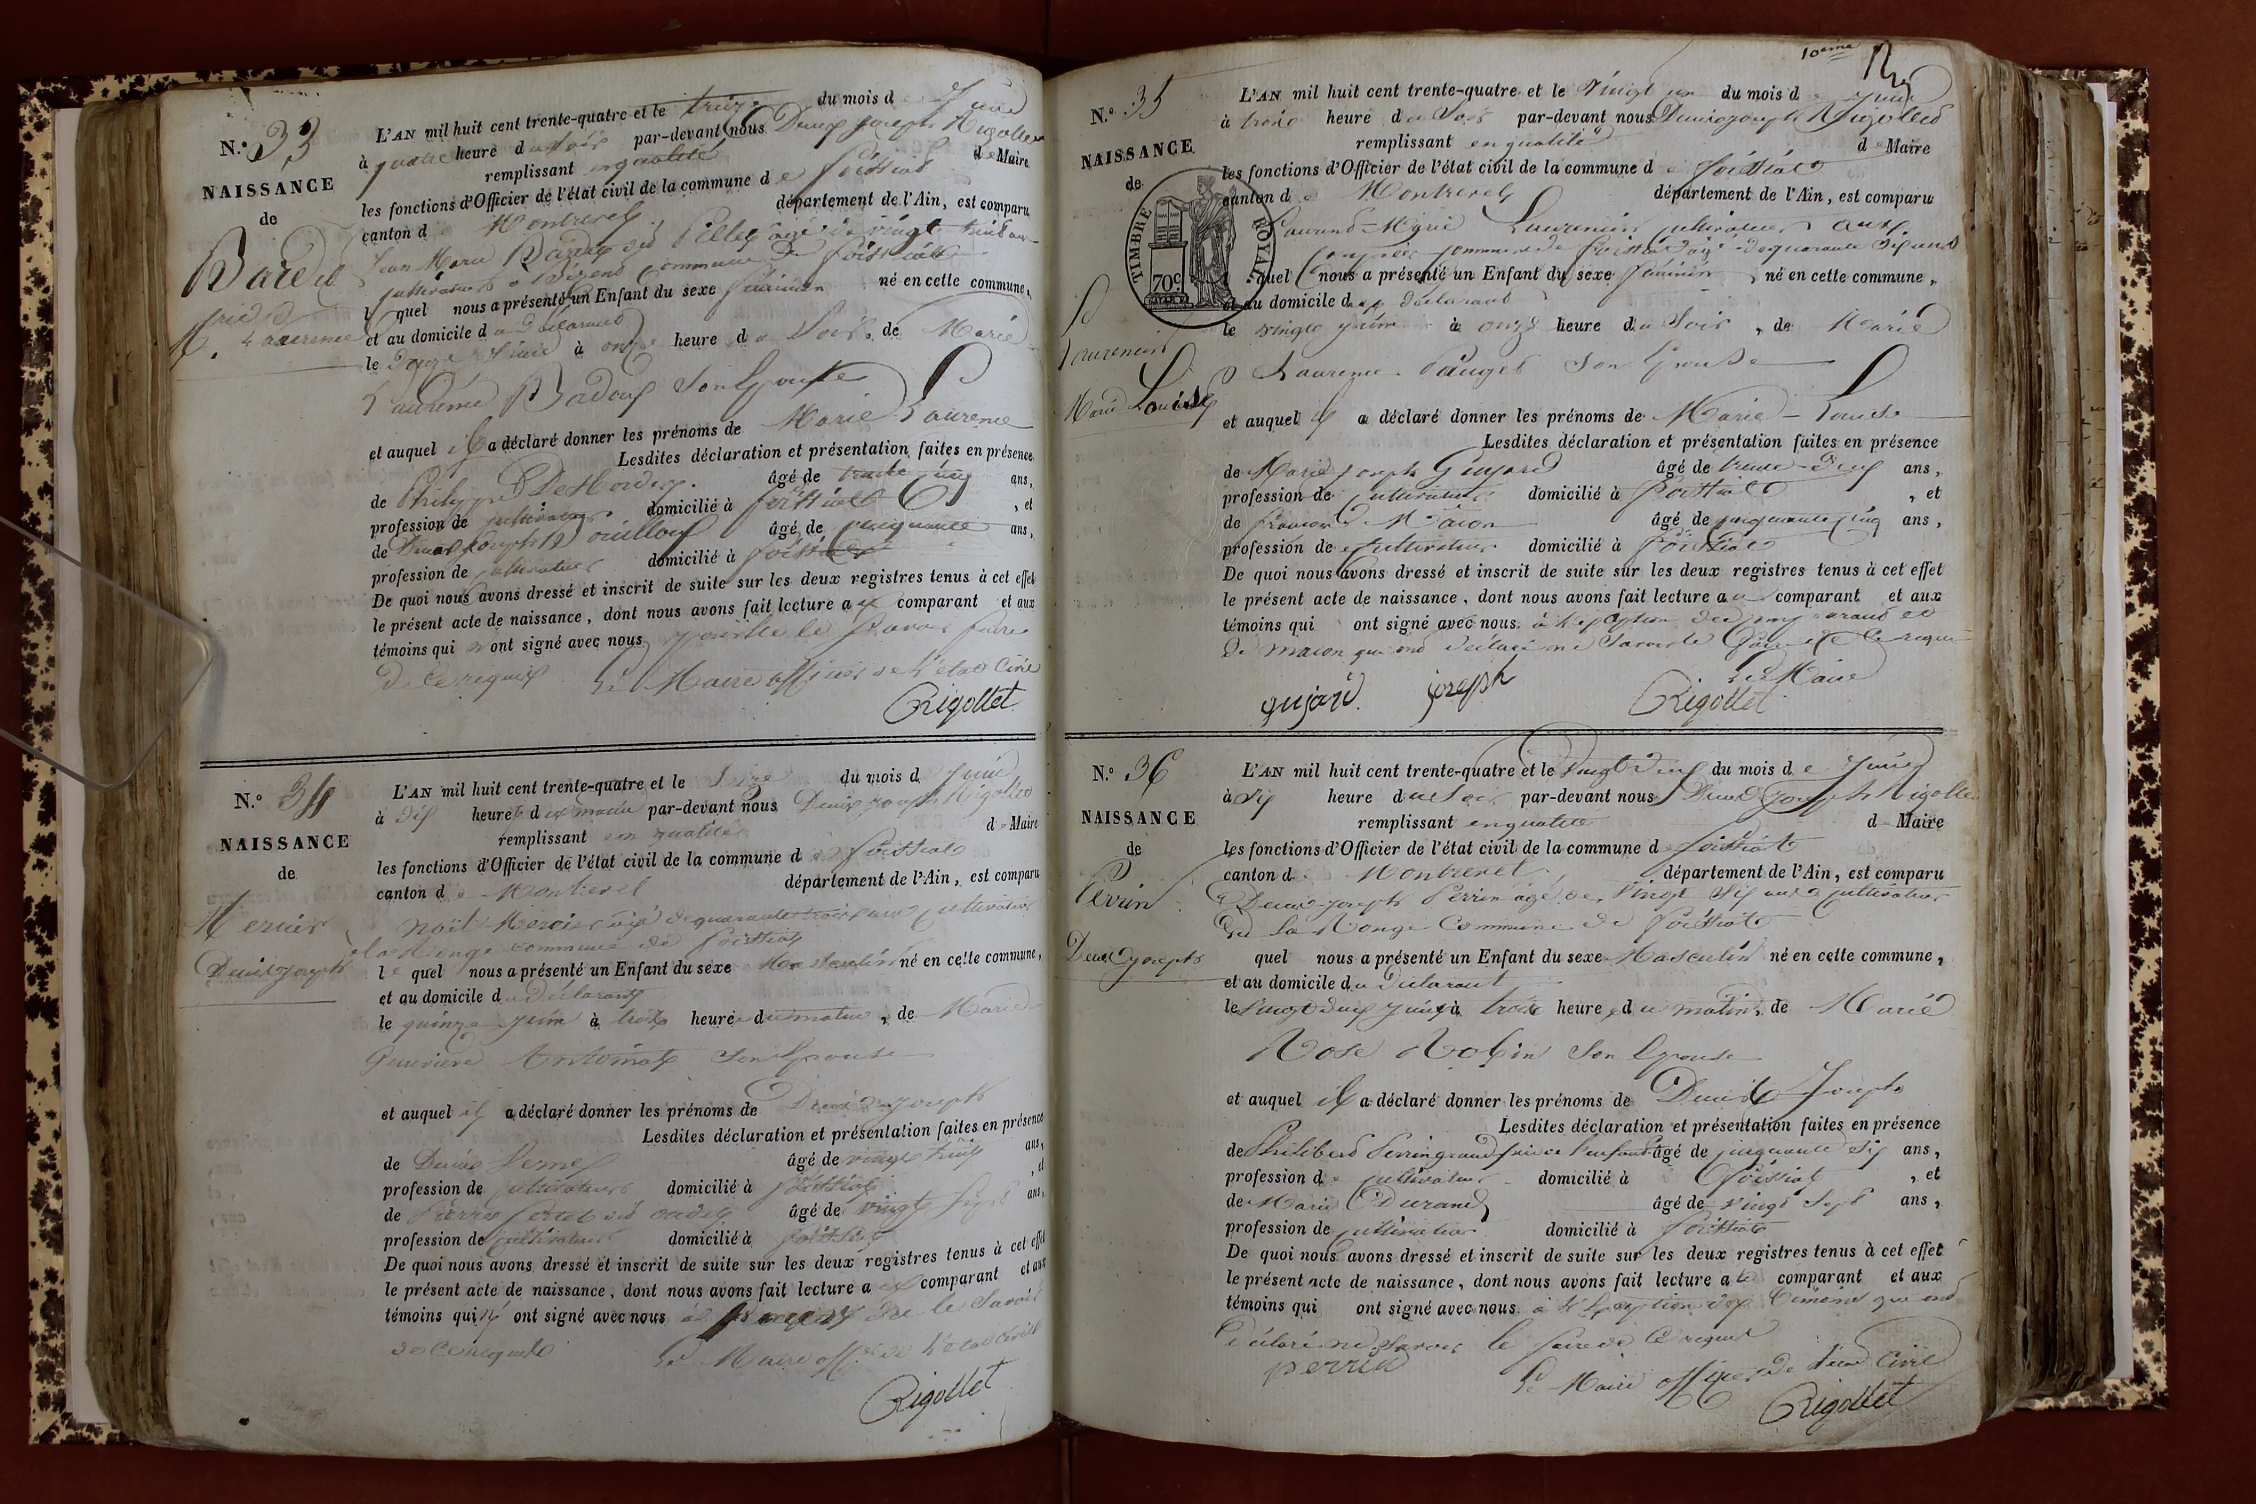 N.° 33
NAISSANCE
de
Marie
Laurence
L'AN mil huit cent trente-quatre et le treize du mois d Juin
à quatre heure du soir par-devant nous Denis Joseph Rigollet
remplissant en qualité de Maire
les fonctions d'Officier de l'état civil de la commune de Foissiat
canton de Montrevel département de l'Ain, est comparu
Jean Marie dit âgé de vingt huit ans
cultivateur à commune de Foissiat
l quel nous a présenté un Enfant du sexe féminin né en cette commune,
et au domicile du déclarant
le douze Juin à onze heure du Soir, de Marie
Laurence Badoux Son Epouse
et auquel il a déclaré donner les prénoms de Marie Laurence
Lesdites déclaration et présentation faites en présence
de Philippe âgé de trente cinq ans,
profession de cultivateur domicilié à Foissiat, et
de Denis Joseph âgé de cinquante ans,
profession de cultivateur domicilié à Foissiat
De quoi nous avons dressé et inscrit de suite sur les deux registres tenus à cet effet
le présent acte de naissance, dont nous avons fait lecture au comparant et aux
témoins qui n ont signé avec nous pour ne le savoir faire
de ce requis Le Maire officier de l'état Civil
Rigollet
N.° 34
NAISSANCE
de
Mercier
Denis Joseph
L'AN mil huit cent trente-quatre et le Seize du mois d Juin
à dix heures du matin par-devant nous Denis Joseph Rigollet
remplissant en qualité de Maire
les fonctions d'Officier de l'état civil de la commune de Foissiat
canton de Montrevel département de l'Ain, est comparu
Noël Mercier âgé de quarante trois ans cultivateur
à la Monge commune de Foissiat
le quel nous a présenté un Enfant du sexe Masculin né en cette commune,
et au domicile du Déclarant
le quinze juin à trois heure du matin, de Marie
Antoinat Son Epouse
et auquel il a déclaré donner les prénoms de Denis Joseph
Lesdites déclaration et présentation faites en présence
de Denis âgé de vingt huit ans,
profession de cultivateur domicilié à Foissiat, et
de Pierre âgé de vingt sept ans,
profession de cultivateur domicilié à Foissiat
De quoi nous avons dressé et inscrit de suite sur les deux registres tenus à cet effet
le présent acte de naissance, dont nous avons fait lecture au comparant et aux
témoins qui n'ont signé avec nous le Savoir
de ce requis Le Maire off. de l'état civil
Rigollet
10eme
N.° 35
NAISSANCE
de
TIMBRE ROYAL
70c
Laurencin
Marie Louise
L'AN mil huit cent trente-quatre et le vingt un du mois d Juin
à trois heure du Soir par-devant nous Denis Joseph Rigollet
remplissant en qualité de Maire
les fonctions d'Officier de l'état civil de la commune de Foissiat
canton de Montrevel département de l'Ain, est comparu
Laurent Marie Laurencin cultivateur aux
commune de Foissiat âgé de quarante dix ans
quel nous a présenté un Enfant du sexe féminin, né en cette commune,
et au domicile du déclarant
le vingt juin à onze heure du Soir, de Marie
Laurence Pauget Son Epouse
et auquel il a déclaré donner les prénoms de Marie-Louise
Lesdites déclaration et présentation faites en présence
de Marie Joseph Gujard âgé de trente-deux ans,
profession de cultivateur domicilié à Foissiat, et
de François Macon âgé de cinquante cinq ans,
profession de cultivateur domicilié à Foissiat
De quoi nous avons dressé et inscrit de suite sur les deux registres tenus à cet effet
le présent acte de naissance, dont nous avons fait lecture au comparant et aux
témoins qui ont signé avec nous à l'exception du comparant et
de Macon qui ont déclaré ne Savoir le faire de ce requis
Le Maire
gujard joseph Rigollet
N.° 36
NAISSANCE
de
Perrin
Denis Joseph
L'AN mil huit cent trente-quatre et le Vingt Deux du mois de Juin
à Six heure du Soir par-devant nous Denis Joseph Rigollet
remplissant en qualité de Maire
les fonctions d'Officier de l'état civil de la commune de Foissiat
canton de Montrevel département de l'Ain, est comparu
Denis Joseph Perrin âgé de Vingt Six ans cultivateur
de la Monge Commune de Foissiat
quel nous a présenté un Enfant du sexe Masculin né en cette commune,
et au domicile du Déclarant
le vingt deux juin à trois heure du matin, de Marie
Rose Robin Son Epouse
et auquel il a déclaré donner les prénoms de Denis Joseph
Lesdites déclaration et présentation faites en présence
de Philibert Perrin grand père de l'enfant âgé de cinquante Six ans,
profession de cultivateur domicilié à Foissiat, et
de Marie Durand âgé de vingt Sept ans,
profession de cultivateur domicilié à Foissiat
De quoi nous avons dressé et inscrit de suite sur les deux registres tenus à cet effet
le présent acte de naissance, dont nous avons fait lecture au comparant et aux
témoins qui ont signé avec nous à l'exception des témoins qui ont
déclaré ne Savoir le faire de Ce requis
perrin Le Maire officier de l'état Civil
Rigollet